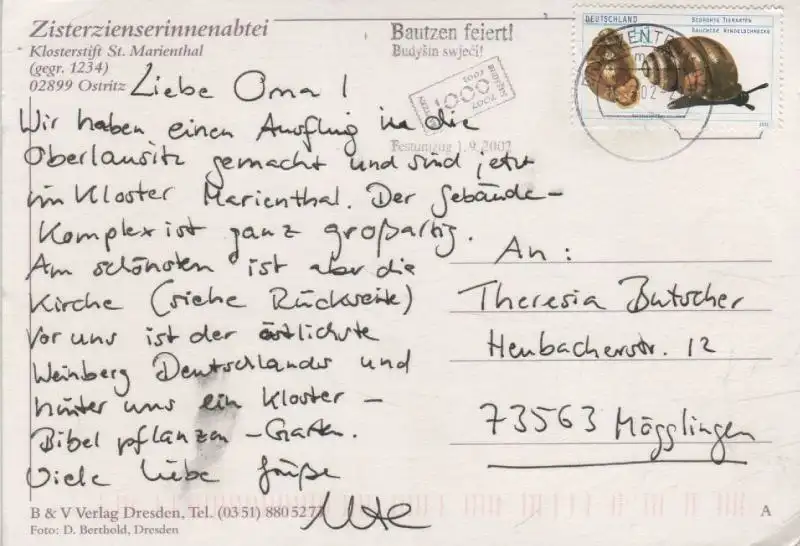 Zisterzienserinnenabtei
Klosterstift St. Marienthal
(gegr. 1234)
02899 Ostritz
Bautzen feiert!
Budyšin swjeći!
1000
Festumzug 1.9.2002
DEUTSCHLAND
BEDROHTE TIERARTEN
BAUCHIGE WINDELSCHNECKE
Liebe Oma!
Wir haben einen Ausflug in die
Oberlausitz gemacht und sind jetzt
im Kloster Marienthal. Der Gebäude-
Komplex ist ganz großartig.
Am schönsten ist aber die
Kirche (siehe Rückseite)
Vor uns ist der östlichste
Weinberg Deutschlands und
hinter uns ein Kloster-
Bibelpflanzen-Garten.
Viele liebe Grüße
Ute
An:
Theresia Butscher
Heubacherstr. 12
73563 Mögglingen
B & V Verlag Dresden, Tel. (03 51) 880 5272
Foto: D. Berthold, Dresden
A